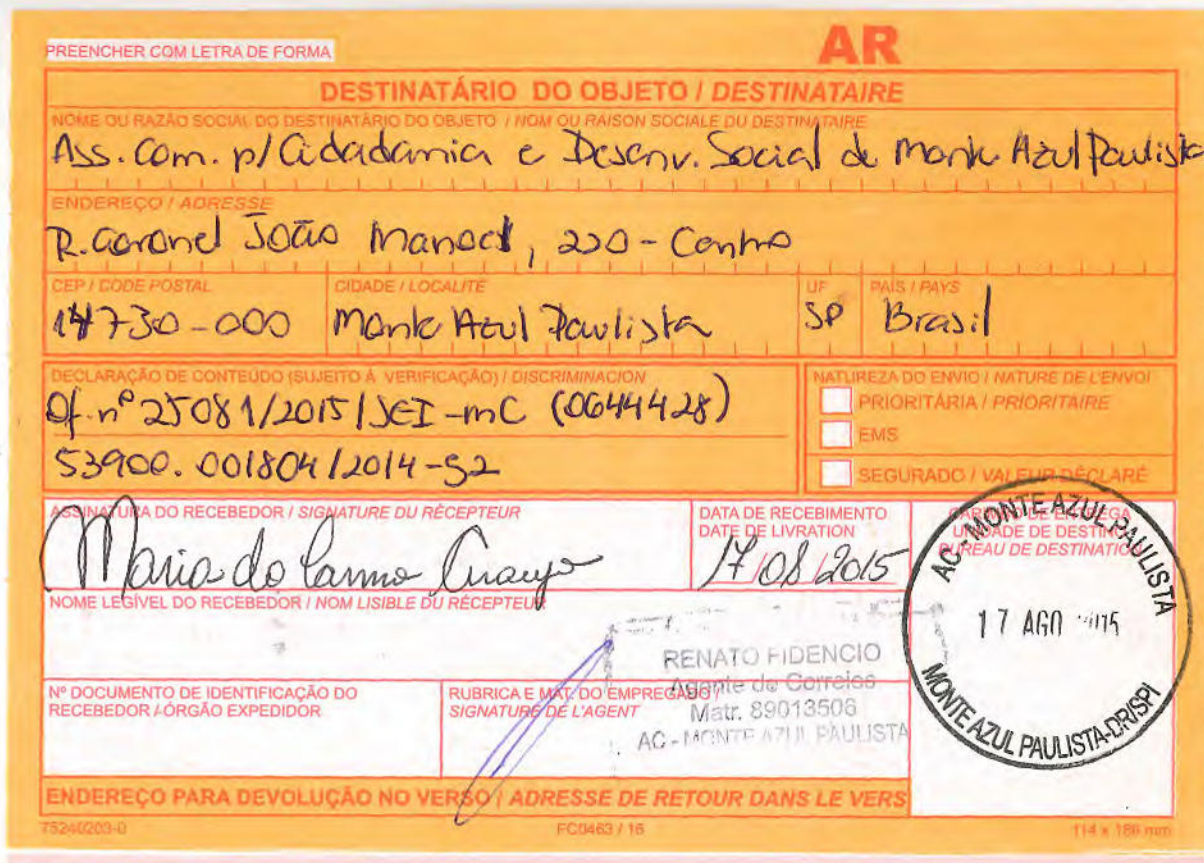 PREENCHER COM LETRA DE FORMA
AR
DESTINATÁRIO DO OBJETO / DESTINATAIRE
NOME OU RAZÃO SOCIAL DO DESTINATÁRIO DO OBJETO / NOM OU RAISON SOCIALE DU DESTINATAIRE
Ass. Com. p/ Cidadania e Desenv. Social de Monte Azul Paulista
ENDEREÇO / ADRESSE
R. Coronel João Manoel, 220 - Centro
CEP / CODE POSTAL CIDADE / LOCALITÉ UF PAÍS / PAYS
14730-000 Monte Azul Paulista SP Brasil
DECLARAÇÃO DE CONTEÚDO (SUJEITO À VERIFICAÇÃO) / DISCRIMINACION
Of. nº 25081/2015/SEI-MC (0644428)
53900.001804/2014-52
NATUREZA DO ENVIO / NATURE DE L'ENVOI
PRIORITÁRIA / PRIORITAIRE
EMS
SEGURADO / VALEUR DÉCLARÉ
ASSINATURA DO RECEBEDOR / SIGNATURE DU RÉCEPTEUR
Maria do Carmo Araujo
DATA DE RECEBIMENTO
DATE DE LIVRATION
17/08/2015
CARIMBO DE ENTREGA
UNIDADE DE DESTINO
BUREAU DE DESTINATION
AC - MONTE AZUL PAULISTA
17 AGO 2015
MONTE AZUL PAULISTA-DR/SPI
NOME LEGÍVEL DO RECEBEDOR / NOM LISIBLE DU RÉCEPTEUR
RENATO FIDENCIO
Agente de Correios
Matr. 89013506
AC - MONTE AZUL PAULISTA
Nº DOCUMENTO DE IDENTIFICAÇÃO DO
RECEBEDOR / ÓRGÃO EXPEDIDOR
RUBRICA E MAT. DO EMPREGADO /
SIGNATURE DE L'AGENT
ENDEREÇO PARA DEVOLUÇÃO NO VERSO / ADRESSE DE RETOUR DANS LE VERS
75240203-0 FC0463 / 16 114 x 186 mm